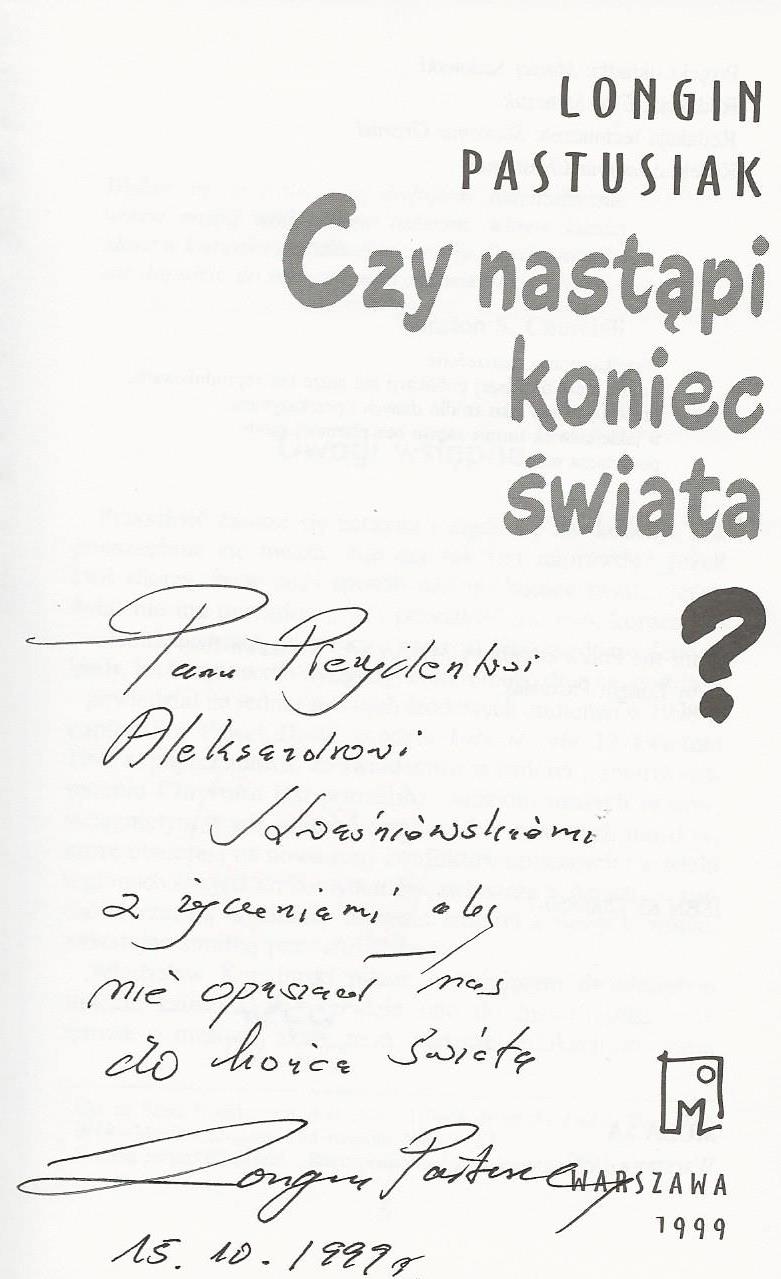 LONGIN
PASTUSIAK
Czy nastąpi
koniec
świata
?
Panu Prezydentowi
Aleksandrowi
Kwaśniewskiemu
z życzeniami aby
nie opuszczał nas
do końca świata
Longin Pastusiak
WARSZAWA
1999
15.10.1999r